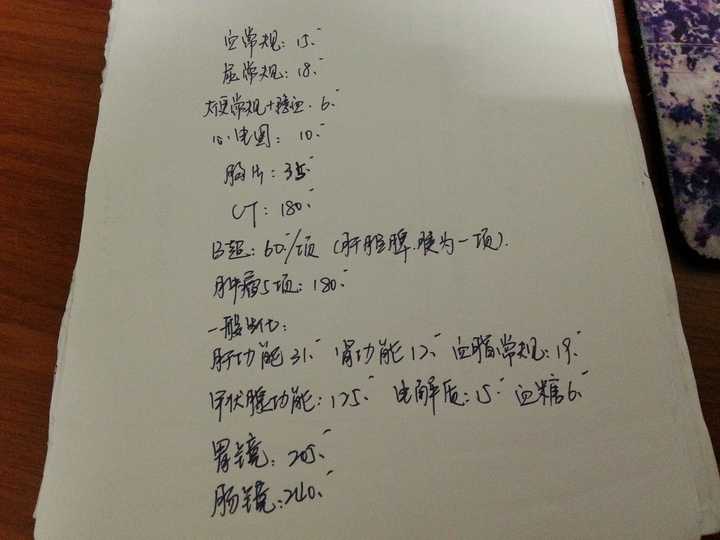 血常规：15.-
尿常规：18.-
大便常规+隐血：6.-
心电图：10.-
胸片：35.-
CT：180.-
B超：60/项（肝胆脾.胰为一项）.
肿瘤5项：180.-
一般生化：
肝功能 31.- 肾功能 12.- 血脂常规：19.-
甲状腺功能：125.- 电解质：15.- 血糖 6.-
胃镜：205.-
肠镜：240.-